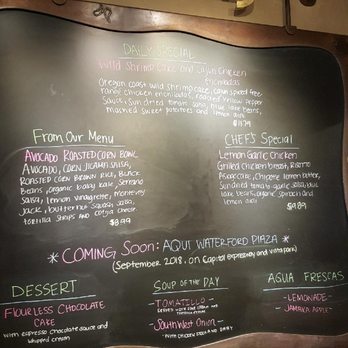 DAILY SPECIAL
Wild Shrimp Cake and Cajun Chicken
Enchiladas
Oregon coast wild shrimp cake, cajun spiced free
range chicken enchiladas, roasted yellow pepper
sauce, sun dried tomato salsa, blue lake beans,
mashed sweet potatoes and lemon aioli
From Our Menu
AVOCADO ROASTED CORN BOWL
AVOCADO, CORN, JICAMA SALSA,
ROASTED CORN BROWN RICE, BLACK
BEANS, organic baby kale, Serrano
Salsa, lemon vinaigrette, Monterey
Jack, butternut squash salsa,
tortilla strips AND cotija cheese
$8.99
CHEF'S Special
Lemon Garlic Chicken
Grilled chicken breast, Risotto
Asparagus, Chipotle lemon butter,
Sun dried tomato garlic salsa, blue
lake beans, organic spinach
and lemon aioli
* COMING Soon: AQUI WATERFORD PLAZA *
(September 2018. on Capitol expressway and Vista park)
DESSERT
FLOURLESS CHOCOLATE
CAKE
with espresso chocolate sauce and
whipped cream
SOUP OF THE DAY
-TOMATILLO-
-SouthWest Onion-
AGUA FRESCAS
-LEMONADE-
-JAMAICA APPLE-